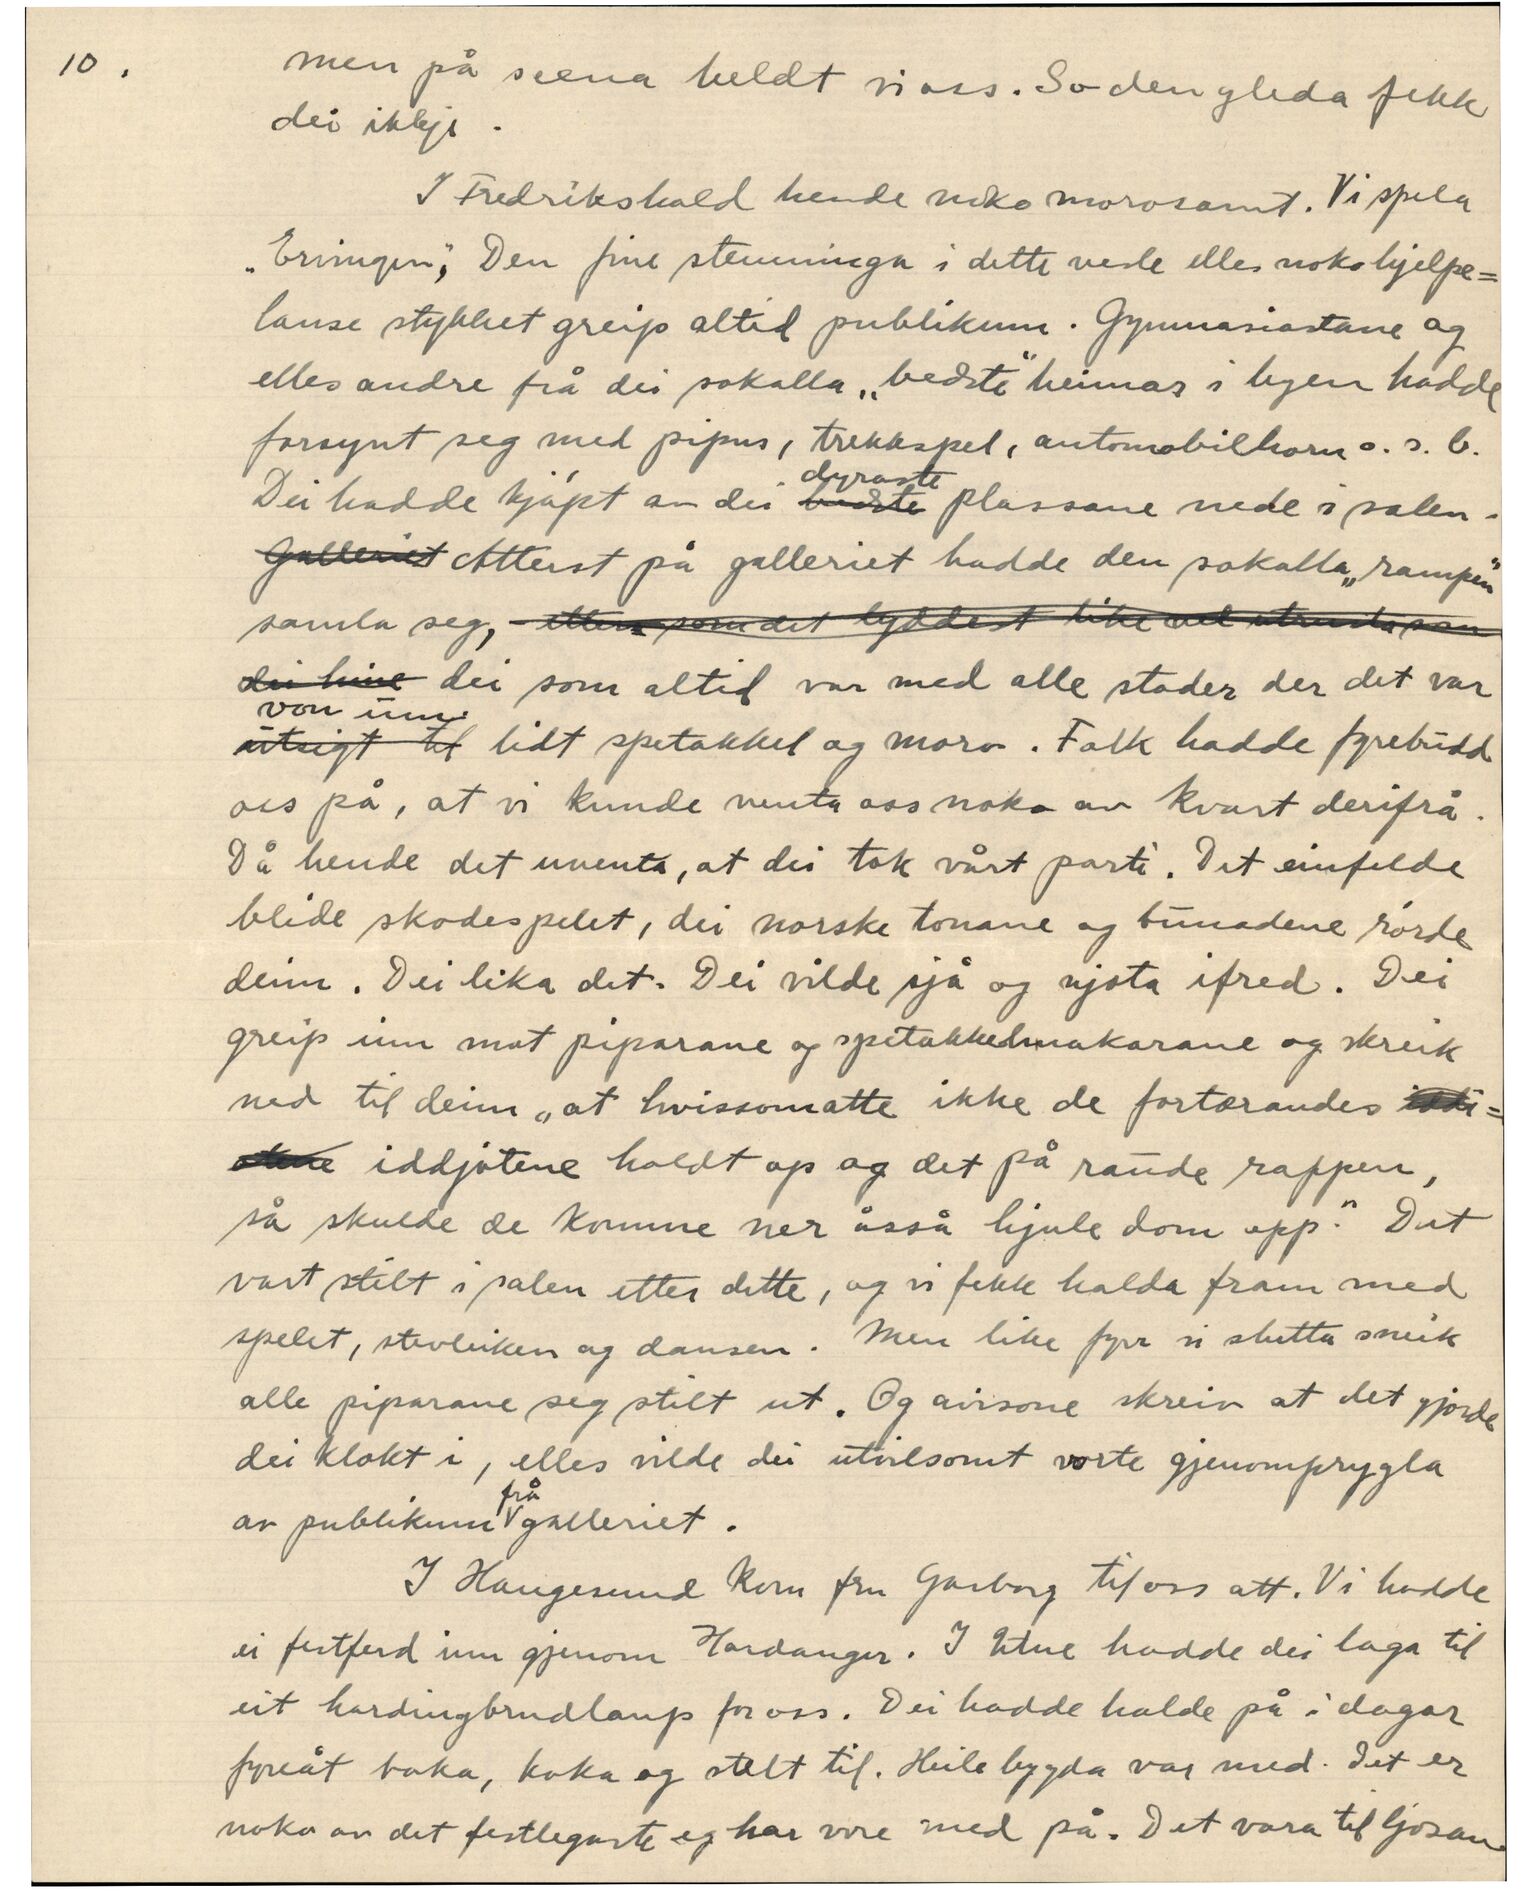 10.
men på scena heldt vi oss. So den gleda fekk
dei ikkje.
I Fredrikshald hende noko morosamt. Vi spela
„Ervingen”, Den fine stemninga i dette vesle elles noko hjelpe=
lause stykket greip altid publikum. Gymnasiastane og
elles andre frå dei sokalla „bedste” heimar i byen hadde
forsynt seg med pipur, trekkspel, automobilhorn o. s. b.
dyraste
Dei hadde kjøpt av dei bedste plassane nede i salen.
Galleriet Atterst på galleriet hadde den sokalla „rampen”
samla seg, ellers som det lyddest like vel utrusta som
dei hine dei som altid var med alle stader der det var
von um
utsigt til lidt spetakkel og moro. Folk hadde fyrebudd
oss på, at vi kunde venta oss noko av kvart derifrå.
Då hende det uventa, at dei tok vårt parti. Det einfelde
blide skodespelet, dei norske tonane og bunadene rørde
deim. Dei lika det. Dei vilde sjå og njota ifred. Dei
greip inn mot piparane og spetakkelmakarane og skreik
ned til deim „at hvissomatte ikke de fortærandes iddi=
otene iddjotene holdt op og det på raude rappen,
så skulde de komme ner åsså hjule dom opp.” Det
vart stilt i salen etter dette, og vi fekk halda fram med
spelet, stevleiken og dansen. Men like fyrr vi slutta sneik
alle piparane seg stilt ut. Og avisone skreiv at det gjorde
dei klokt i, elles vilde dei utvilsomt vorte gjenomprygla
frå
av publikum galleriet.
I Haugesund kom fru Garborg til oss att. Vi hadde
ei festferd inn gjenom Hardanger. I Utne hadde dei laga til
eit hardingbrudlaup for oss. Dei hadde halde på i dagar
fyreåt baka, koka og stelt til. Heile bygda var med. Det er
noko av det festlegaste eg har vore med på. Det vara til ljosan